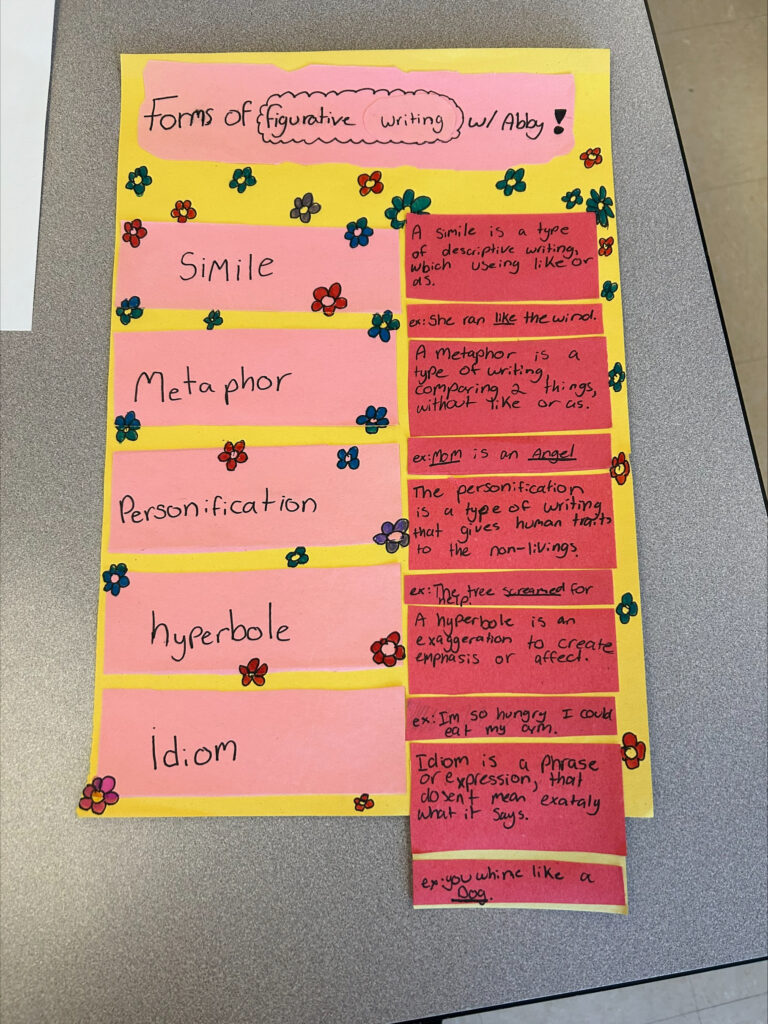 Forms of figurative writing w/ Abby!
Simile
A simile is a type
of descriptive writing,
which useing like or
as.
ex: She ran like the wind.
Metaphor
A metaphor is a
type of writing
comparing 2 things,
without like or as.
ex: Mom is an Angel
Personification
The personification
is a type of writing
that gives human traits
to the non-livings.
ex: The tree screamed for
help.
hyperbole
A hyperbole is an
exaggeration to create
emphasis or affect.
ex: Im so hungry I could
eat my arm.
idiom
Idiom is a phrase
or expression, that
dosen't mean exataly
what it says.
ex: you whine like a
Dog.